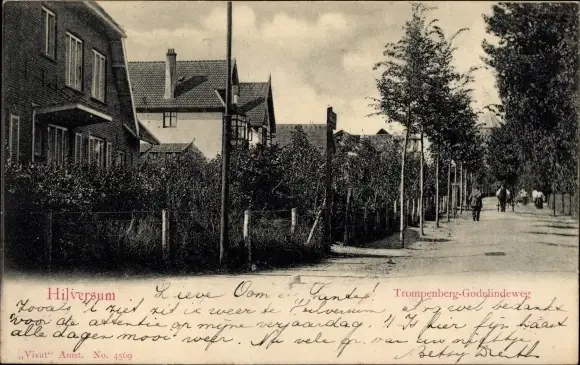 Hilversum
Trompenberg-Godelindeweg
Lieve Oom en Tante!
Zooals U ziet zit ik weer te Hilversum. Nog wel bedankt
voor de attentie op mijne verjaardag. 't Is hier fijn haast
alle dagen mooi weer. Nu vele gr. van uw nichtje
Betsy
„Vivat" Amst. No. 4569